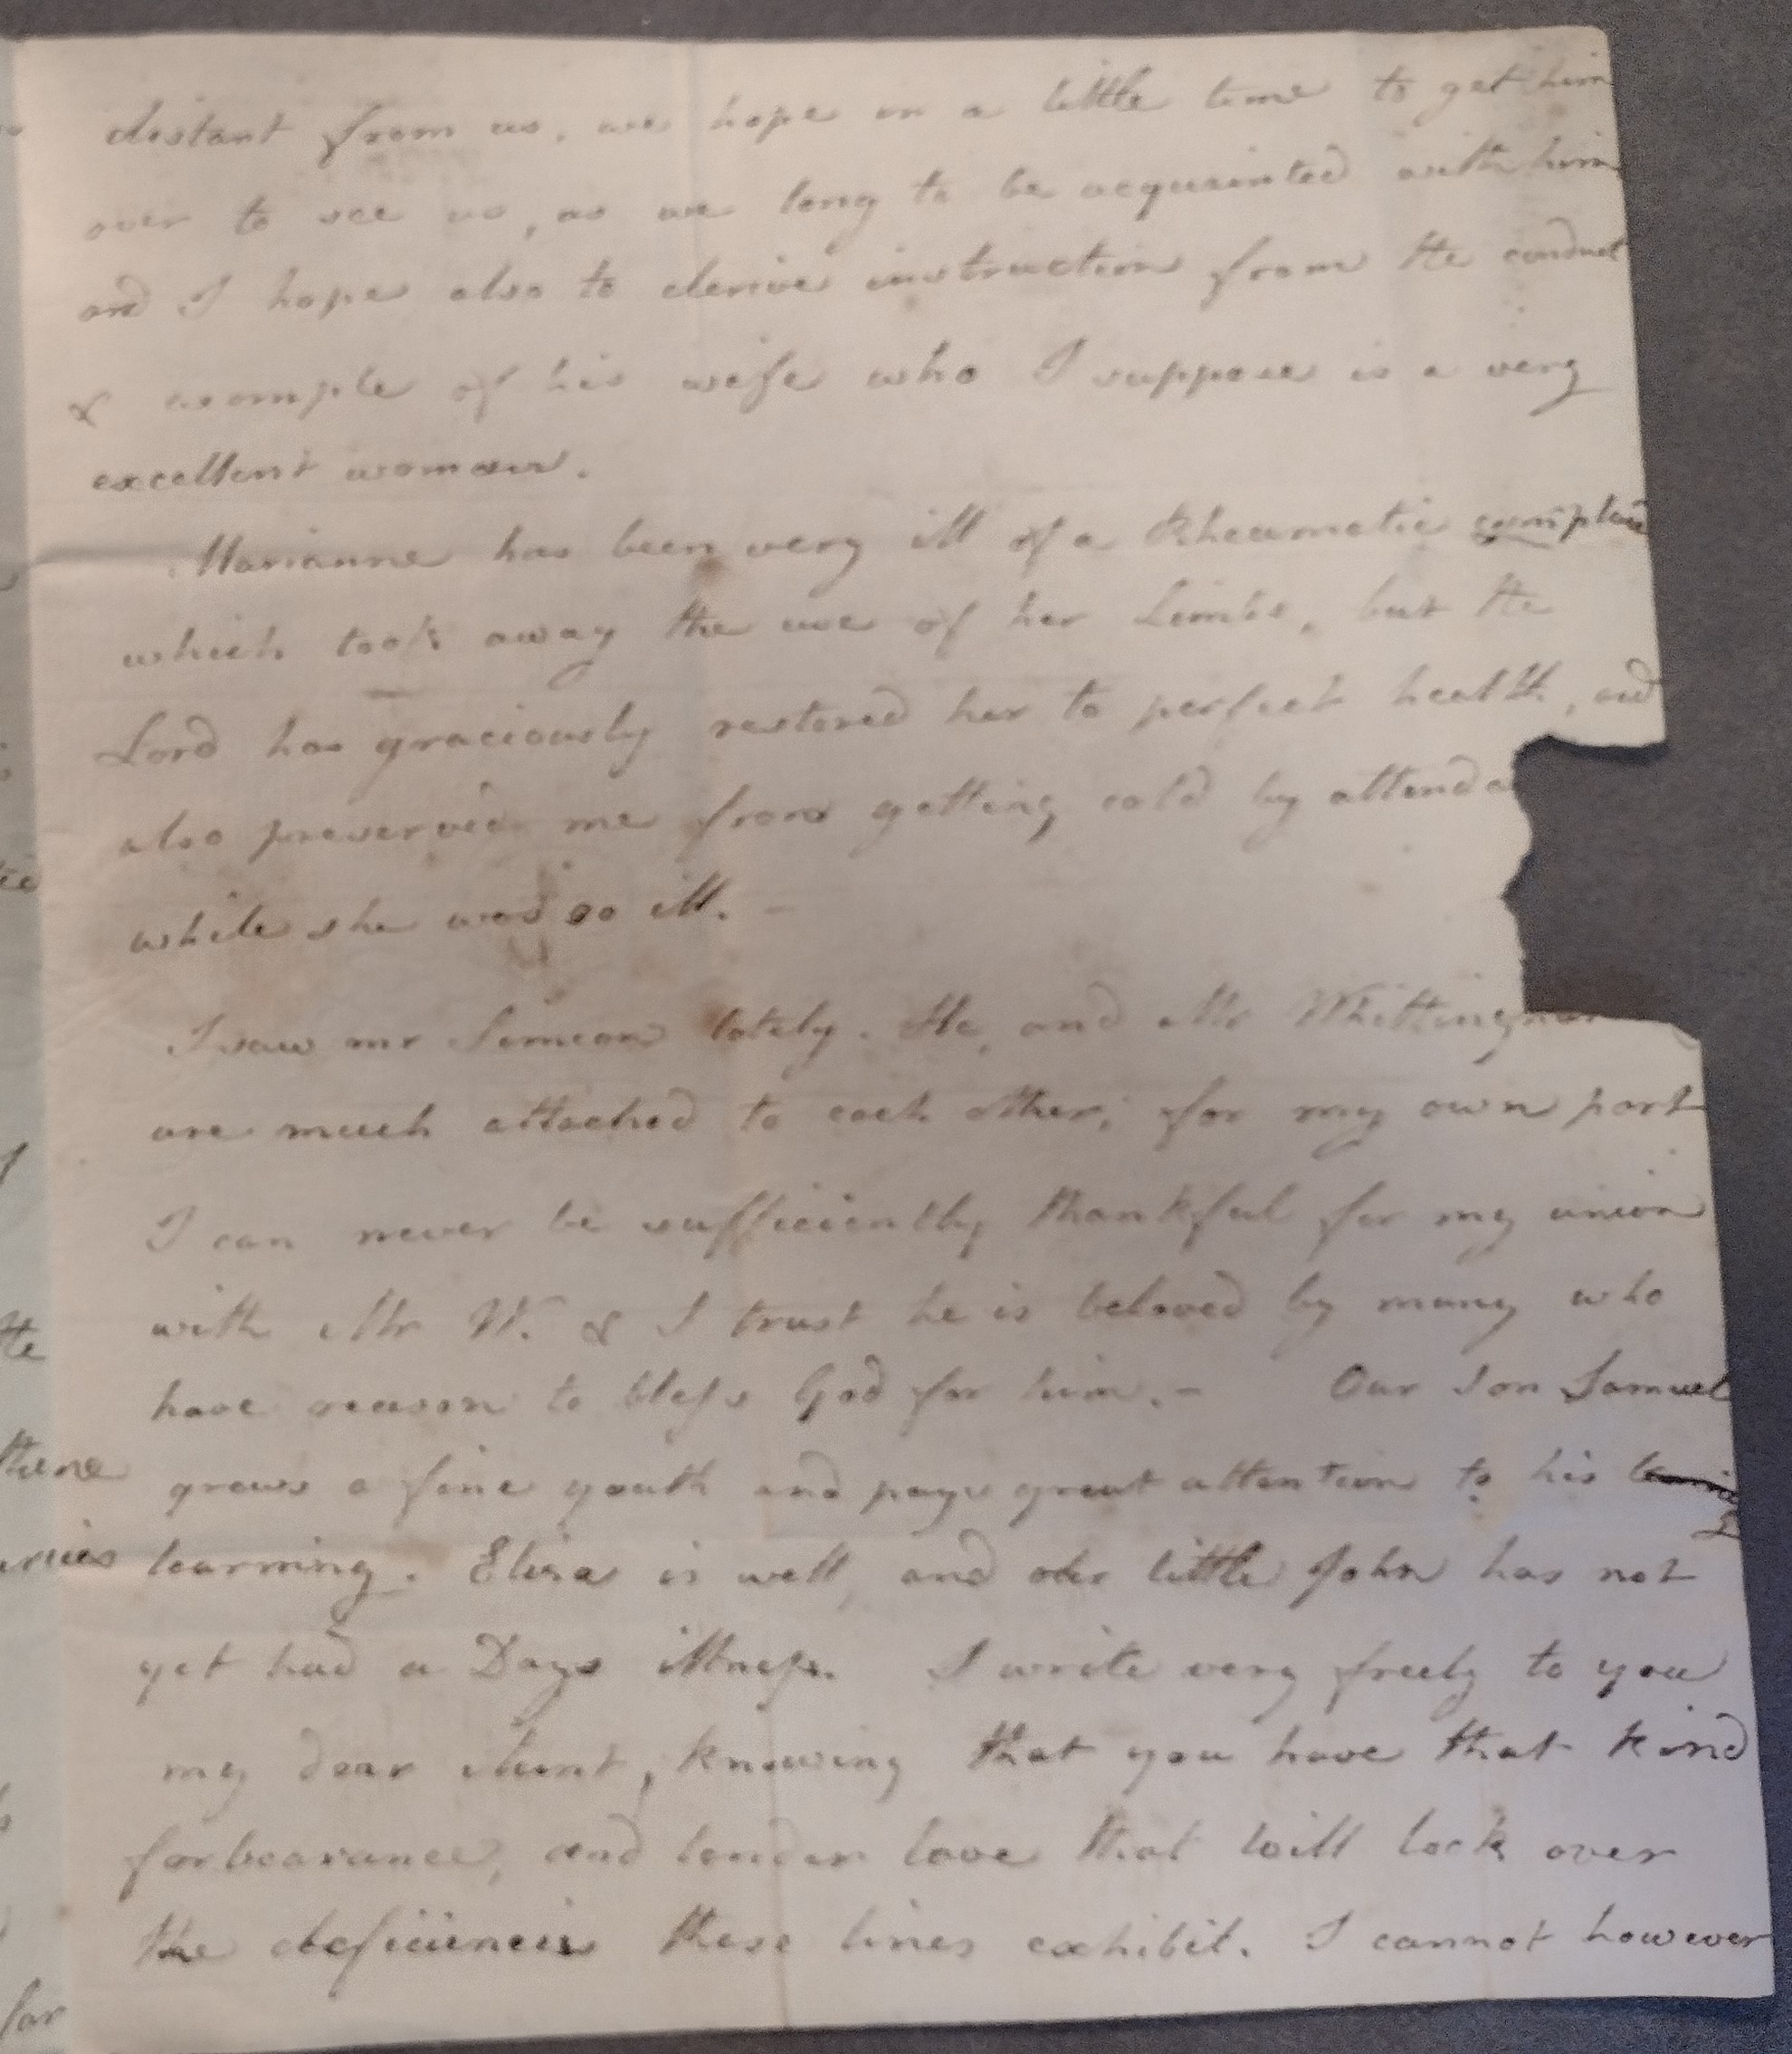 distant from us, we hope in a little time to get him
over to see us, as we long to be acquainted with him
and I hope also to derive instruction from the conduct
& example of his wife who I suppose is a very
excellent woman.
Marianne has been very ill of a Rheumatic complain
which took away the use of her Limbs, but the
Lord has graciously restored her to perfect health, and
also preserved me from getting cold by attenda
while she was so ill. -
I saw mr Simeon lately. He, and Mr Whittingham
are much attached to each other; for my own part
I can never be sufficiently thankful for my union
with Mr W. & I trust he is beloved by many who
have reason to bless God for him. - Our Son Samuel
grows a fine youth and pays great attention to his
learning. Eliza is well, and our little John has not
yet had a Days illness. I write very freely to you
my dear Aunt, knowing that you have that kind
forbearance, and tender love that will look over
the deficiencies these lines exhibit. I cannot however